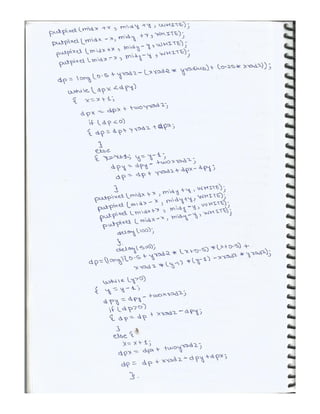 putpixel(midx +x, midy +y, WHITE);
putpixel(midx -x, midy +y, WHITE);
putpixel(midx+x, midy-y, WHITE);
putpixel(midx-x, midy-y, WHITE);
dp= long(0.5+ yrad2-(xrad2* yradius)+ (0.25* xrad2));
while (dpx<dpy)
{ x=x+1;
dpx = dpx + twoyrad2;
if (dp<0)
{ dp= dp+ yrad2 +dpx;
}
else
{ y=y-1;
dpy=dpy-twoxrad2;
dp= dp+ yrad2+dpx-dpy;
}
putpixel(midx+x, midy+y, WHITE);
putpixel(midx-x, midy+y, WHITE);
putpixel(midx+x, midy-y, WHITE);
putpixel(midx-x, midy-y, WHITE);
delay(100);
}
delay(500);
dp=(long)(0.5+yrad2*(x+0.5)*(x+0.5)+
xrad2*(y-1)*(y-1)-xrad2*yrad2);
while(y>0)
{ y=y-1;
dpy=dpy-twoxrad2;
if (dp>0)
{ dp= dp+ xrad2-dpy;
}
else {
x=x+1;
dpx= dpx+ twoyrad2;
dp= dp+xrad2-dpy+dpx;
}.